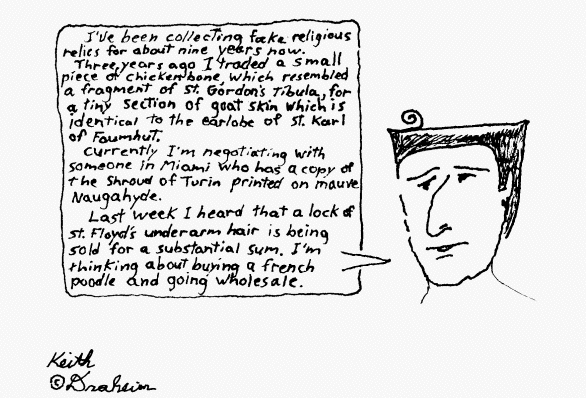 I've been collecting fake religious
relics for about nine years now.
Three years ago I traded a small
piece of chicken bone, which resembled
a fragment of St. Gordon's Tibula, for
a tiny section of goat skin which is
identical to the earlobe of St. Karl
of Faumhut.
Currently I'm negotiating with
someone in Miami who has a copy of
the Shroud of Turin printed on mauve
Naugahyde.
Last week I heard that a lock of
St. Floyd's underarm hair is being
sold for a substantial sum. I'm
thinking about buying a french
poodle and going wholesale.
Keith
© Draheim